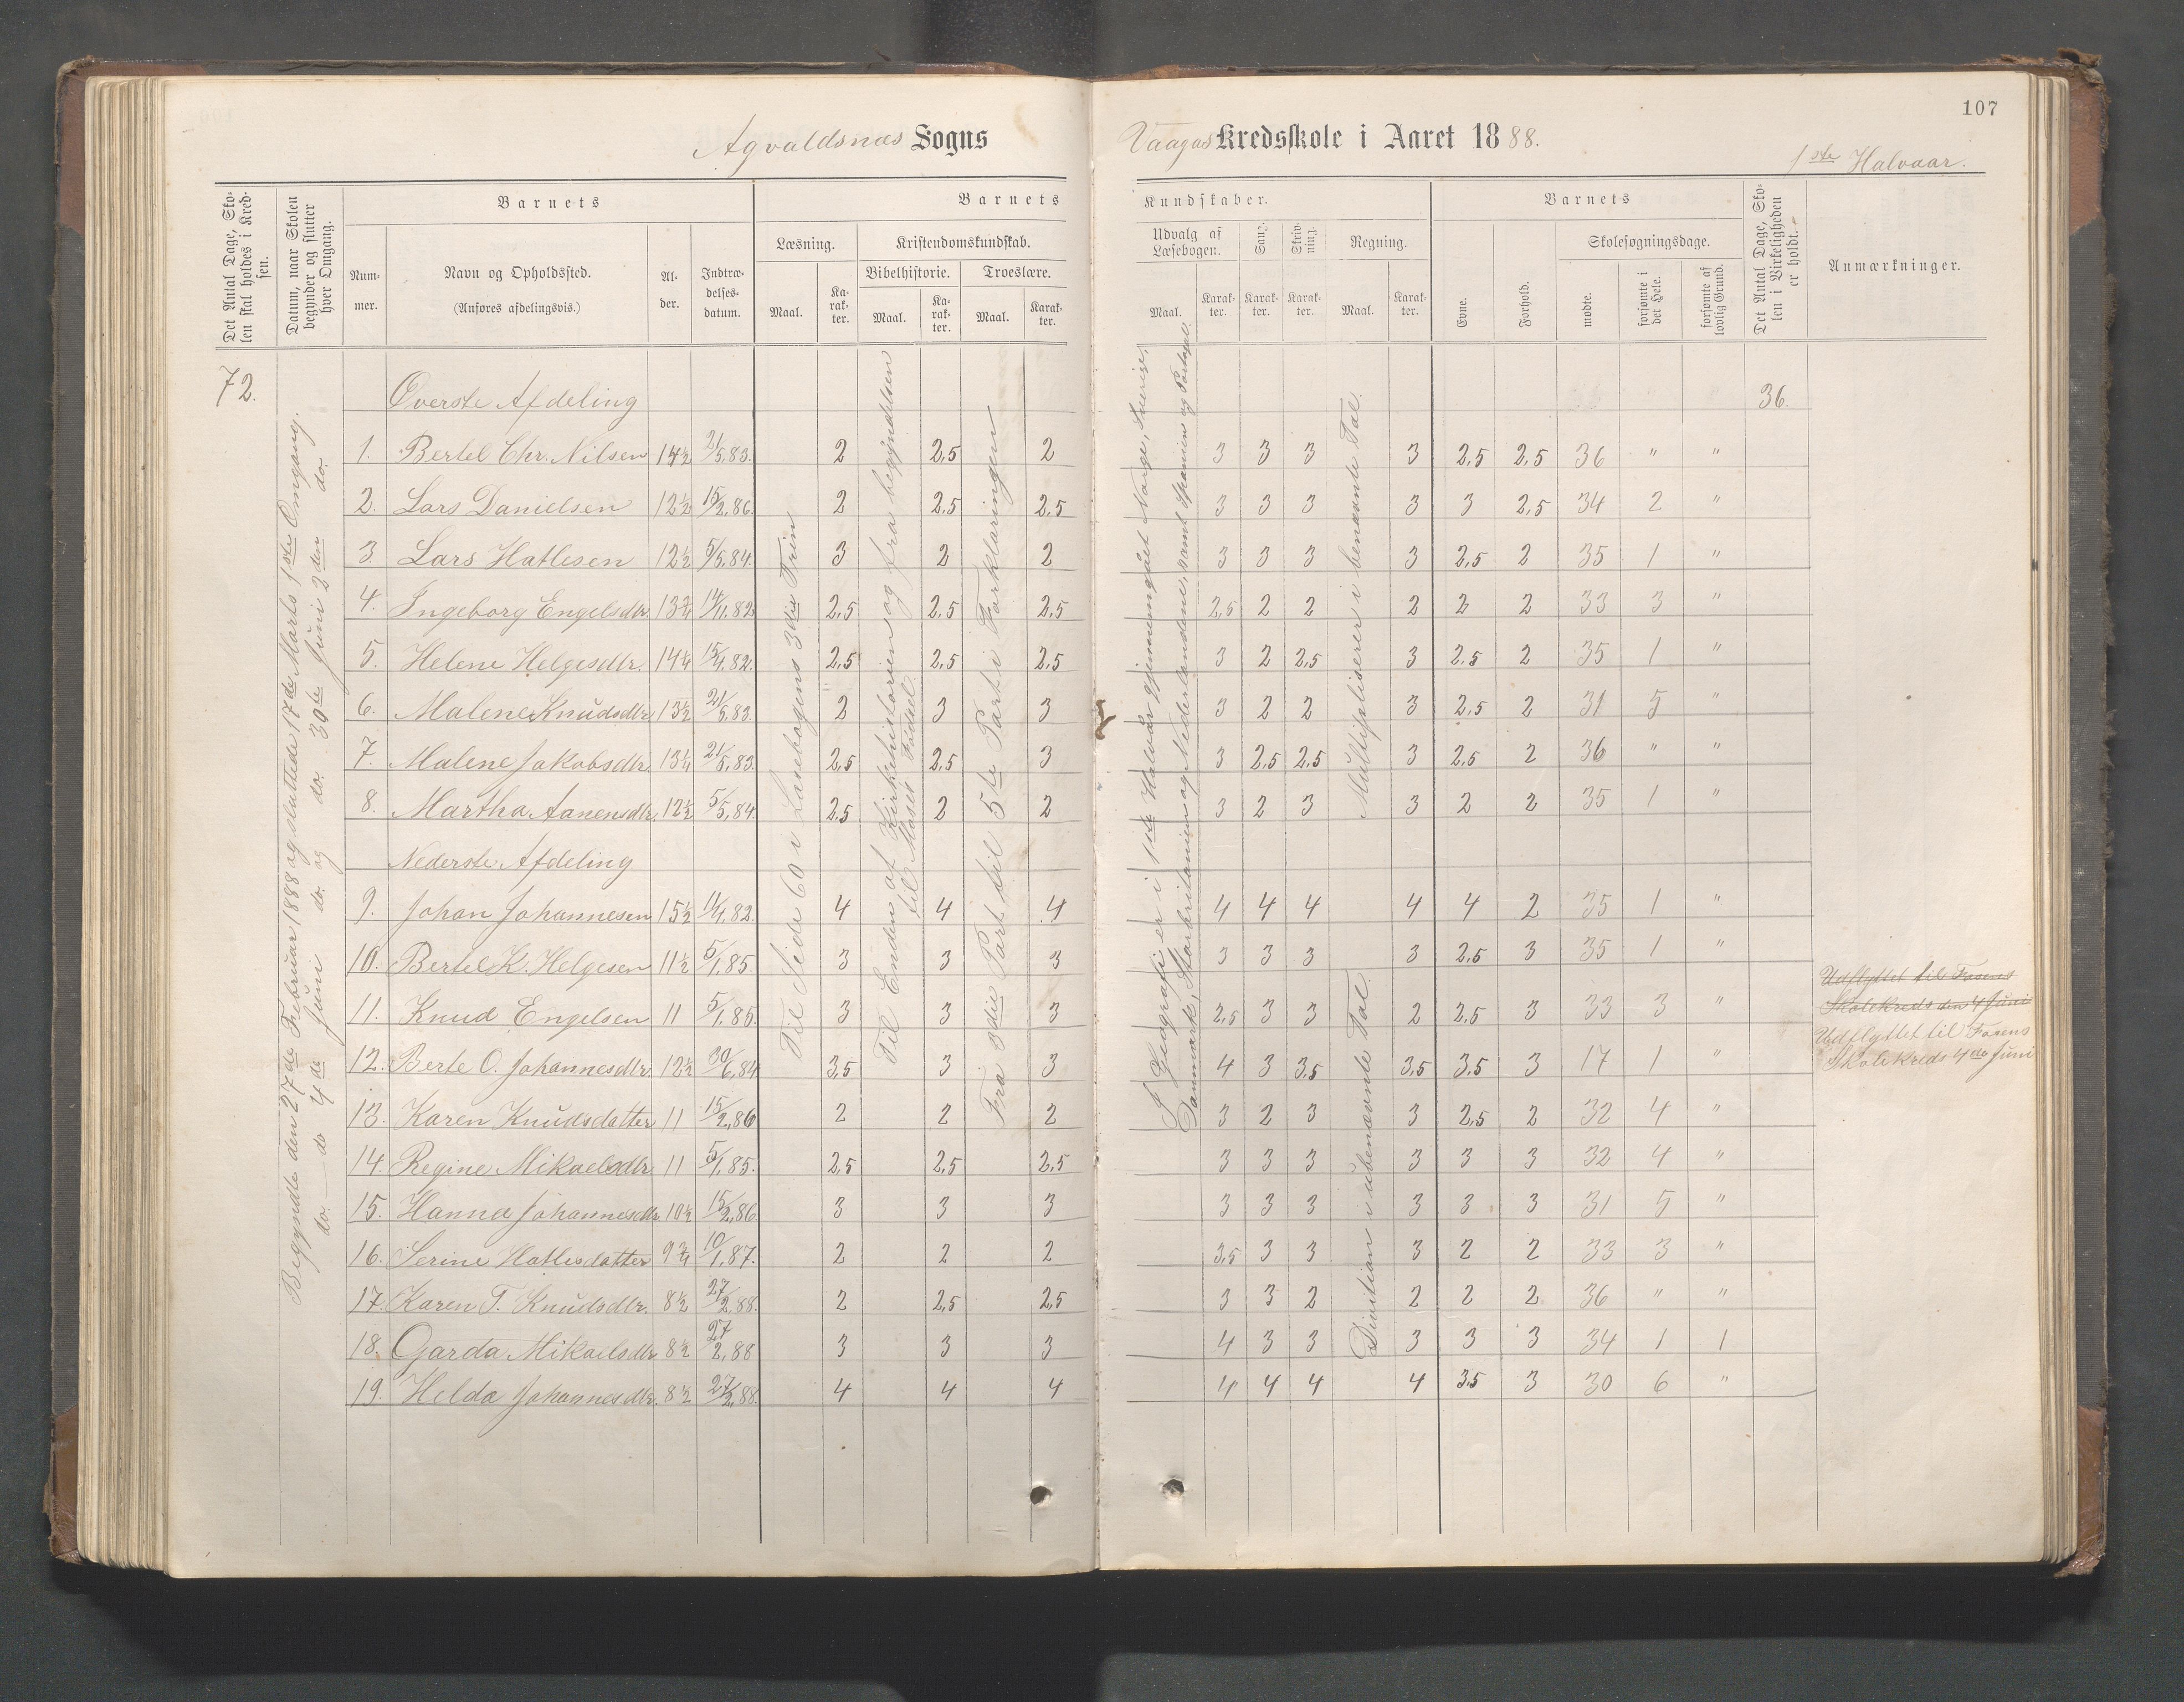 107
Agvaldsnæs Sogns
Vaagas Kredsskole i Aaret 1888.
1ste Halvaar.
Det Antal Dage, Sko-
len skal holdes i Kred-
sen.
Datum, naar Skolen
begynder og slutter
hver Omgang.
Barnets
Num-
mer.
Navn og Opholdssted.
(Anføres afdelingsvis.)
Al-
der.
Indtræ-
delses-
datum.
Barnets
Læsning.
Maal.
Ka-
rak-
ter.
Kristendomskundskab.
Bibelhistorie.
Maal.
Ka-
rak-
ter.
Troeslære.
Maal.
Karak-
ter.
Kundskaber.
Udvalg af
Læsebogen.
Maal.
Karak-
ter.
Sang.
Karak-
ter.
Skriv-
ning.
Karak-
ter.
Regning.
Maal.
Karak-
ter.
Barnets
Evne.
Forhold.
Skolesøgningsdage.
mødte.
forsømte i
det Hele.
forsømte af
lovlig Grund.
Det Antal Dage, Sko-
len i Virkeligheden
er holdt.
Anmærkninger.
72.
Begyndte den 27de Februar 1888 og sluttede 17de Marts 1ste Omgang.
do. do 4de Juni do. og do. 30te Juni 2den do.
Til Side 60 i Læsebogens 3die Trin
Til Enden af Kirkehistorien og fra begyndelsen
til Moses Fødsel.
Fra 3die Part til 5te Part i Forklaringen
I Geografi er i 1ste Halvår gjennemgået Norge, Sverige,
Danmark, Storbritanien og Nederlandene, samt Spanien og Portugal.
Multipliserer i benævnte Tal.
Division i ubenævnte Tal.
Øverste Afdeling 36.
1. Bertel Chr. Nilsen 14½ 21/5.83. 2 2,5 2 3 3 3 3 2,5 2,5 36 " "
2. Lars Danielsen 12½ 15/2.86. 2 2,5 2,5 3 3 3 3 3 2,5 34 2 "
3. Lars Hatlesen 12½ 5/5.84. 3 2 2 3 3 3 3 2,5 2 35 1 "
4. Ingeborg Engelsdtr. 13¾ 14/11.82 2,5 2,5 2,5 2,5 2 2 2 2 2 33 3 "
5. Helene Helgesdtr. 14¼ 15/4.82. 2,5 2,5 2,5 3 2 2,5 3 2,5 2 35 1 "
6. Malene Knudsdtr 13½ 21/5.83. 2 3 3 3 2 2 3 2,5 2 31 5 "
7. Malene Jakobsdtr. 13¼ 21/5.83. 2,5 2,5 3 3 2,5 2,5 3 2,5 2 36 " "
8. Martha Aanensdtr. 12½ 5/5.84. 2,5 2 2 3 2 3 3 2 2 35 1 "
Nederste Afdeling
9. Johan Johannesen 15½ 11/4.82. 4 4 4 4 4 4 4 4 2 35 1 "
10. Bertel K. Helgesen 11½ 5/1.85. 3 3 3 3 3 3 3 2,5 3 35 1 "
11. Knud Engelsen 11 5/1.85. 3 3 3 2,5 3 3 2 2,5 3 33 3 "
Udflyttet til Fosens
Skolekreds den 4 Juni
12. Berte O. Johannesdtr. 12½ 30/6.84 3,5 3 3 4 3 3,5 3,5 3,5 3 17 1 "
Udflyttet til Fosens
Skolekreds 4de Juni
13. Karen Knudsdatter 11 15/2.86 2 2 2 3 2 3 3 2,5 2 32 4 "
14. Regine Mikaelsdtr 11 5/1.85. 2,5 2,5 2,5 3 3 3 3 3 3 32 4 "
15. Hanna Johannesdtr. 10½ 15/2.86. 3 3 3 3 3 3 3 3 3 31 5 "
16. Serine Hatlesdatter 9¾ 10/1.87. 2 2 2 3,5 3 3 3 2 2 33 3 "
17. Karen T. Knudsdtr. 8½ 27/2.88. 2 2,5 2,5 3 3 2 2 2 2 36 " "
18. Garda Mikaelsdtr 8½ 27/2.88 3 3 3 4 3 3 3 3 3 34 1 1
19. Helda Johannesdtr. 8½ 27/2.88. 4 4 4 4 4 4 4 3,5 3 30 6 "